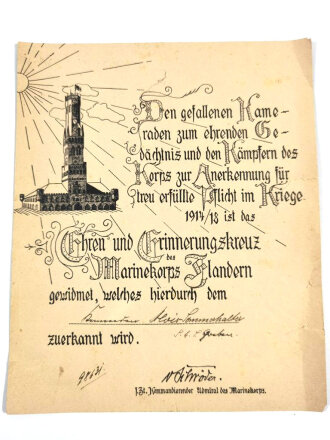 Den gefallenen Kame-
raden zum ehrenden Ge-
dächtnis und den Kämpfern des
Korps zur Anerkennung für
treu erfüllte Pflicht im Kriege
1914/18 ist das
Ehren und Erinnerungskreuz
des
Marinekorps Flandern
gewidmet, welches hierdurch dem
Alois
zuerkannt wird.
v Schröder
z.Zt. Kommandierender Admiral des Marinekorps.